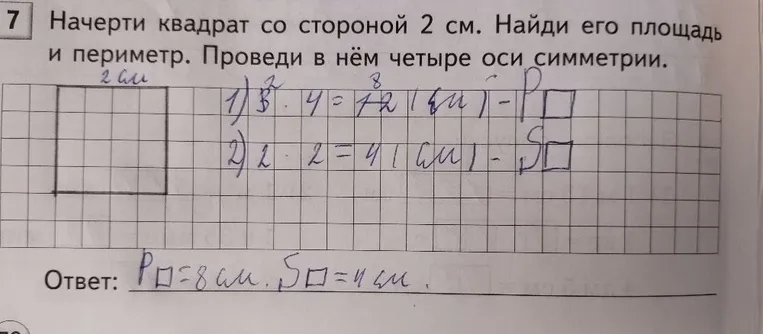 7 Начерти квадрат со стороной 2 см. Найди его площадь
и периметр. Проведи в нём четыре оси симметрии.
2 см
1) 2 · 4 = 8 (см) - P□
2) 2 · 2 = 4 (см) - S□
Ответ: P□ = 8 см. S□ = 4 см.